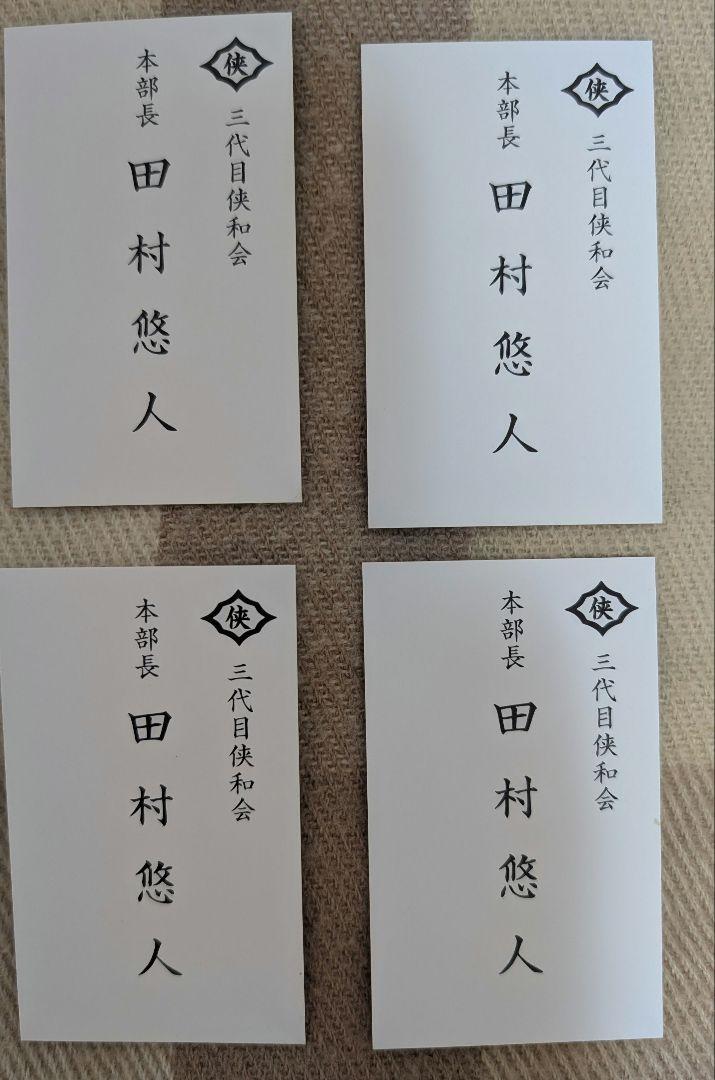 侠
三代目侠和会
本部長
田村悠人
侠
三代目侠和会
本部長
田村悠人
侠
三代目侠和会
本部長
田村悠人
侠
三代目侠和会
本部長
田村悠人